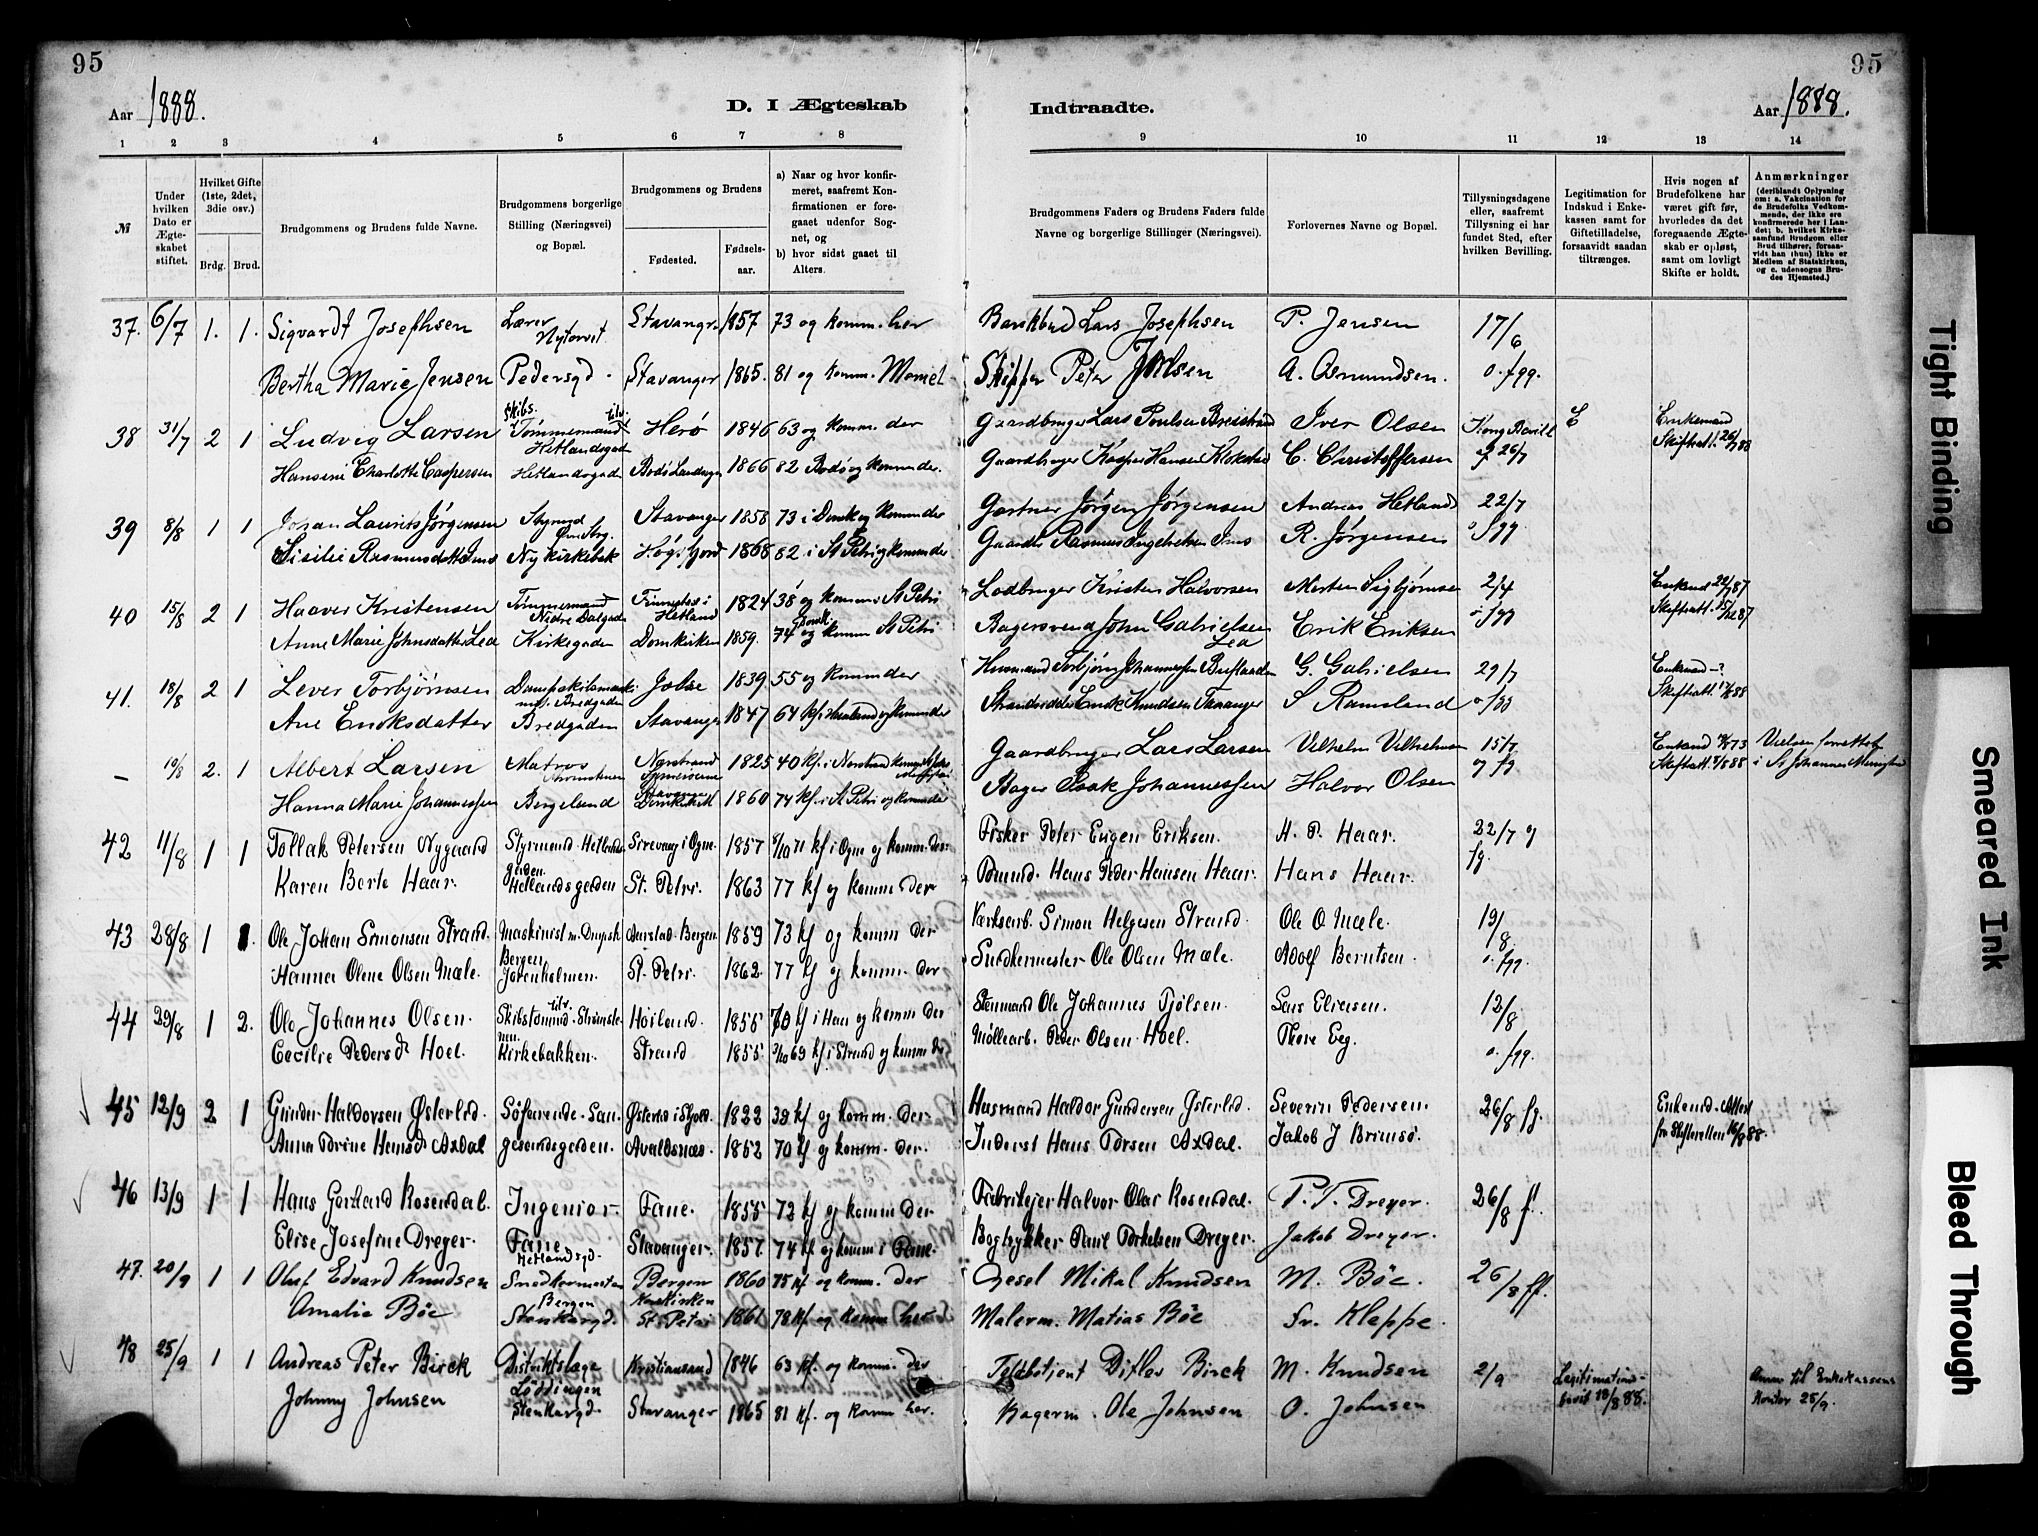 95
95
Aar 1888.
D. I Ægteskab
Indtraadte.
Aar 1888.
1 2 3 4 5 6 7 8 9 10 11 12 13 14
№
Under hvilken Dato er Ægteskabet stiftet.
Hvilket Gifte (1ste, 2det, 3die osv.)
Brdg. Brud.
Brudgommens og Brudens fulde Navne.
Brudgommens borgerlige Stilling (Næringsvei) og Bopæl.
Brudgommens og Brudens
Fødested.
Fødselsaar.
a) Naar og hvor konfirmeret, saafremt Konfirmationen er foregaaet udenfor Sognet, og
b) hvor sidst gaaet til Alters.
Brudgommens Faders og Brudens Faders fulde Navne og borgerlige Stillinger (Næringsvei).
Forlovernes Navne og Bopæl.
Tillysningsdagene eller, saafremt Tillysning ei har fundet Sted, efter hvilken Bevilling.
Legitimation for Indskud i Enkekassen samt for Giftetilladelse, forsaavidt saadan tiltrænges.
Hvis nogen af Brudefolkene har været gift før, hvorledes da det foregaaende Ægteskab er opløst, samt om lovligt Skifte er holdt.
Anmærkninger (deriblandt Oplysning om: a. Vakcination for de Brudefolks Vedkommende, der ikke ere konfirmerede her i Landet; b. hvilket Kirkesamfund Brudgom eller Brud tilhører, forsaavidt han (hun) ikke er Medlem af Statskirken, og c. udensogns Brudes Hjemsted.)
37. 6/7 1. 1. Sigvardt Josephsen Lærer Nytorvet Stavanger 1857 73 og komm. her Bankbud Lars Josephsen P. Jensen 17/6
Bertha Marie Jensen Pedersgd. Stavanger 1865. 81 og komm. Lars Skipper Peter Jensen A. Asmundsen. o. fgg.
38 31/7 2 1 Ludvig Larsen Skibstømmermand Hetlandsgaden Herø 1846 63 og komm. der Gaardbruger Lars Poulsen Iver Olsen Kong Bevill E Enkemand
Hansine Charlotte Caspersen Hetlandsgaden Bodø Landsogn 1866 82 Bodø og komm der. Gaardbruger Kasper Hansen C. Christoffersen 26/7 Skifteatt.
39 8/8 1 1 Johan Laurits Jørgensen Styrmd Stavanger 1858 73 i Domk og komm der Gartner Jørgen Jørgensen Andreas Hetland 22/7
Sicilie Rasmusdatter Ims Nykirkebak Høgsfjord 1868 82 i St Petri og komm der Gaardb Rasmus Ingebretsen Ims R. Jørgensen o fgg
40 15/8 2 1 Haaver Kristensen Tømmermand Nedre Dalgaden Finnestad i Hetland 1824 38 og komm i St Petri Lodbruger Kristen Halvorsen Morten Sigbjørnsen 2/4 Enkemd 22/7 87
Anne Marie Johnsdatter Lea Kirkegaden Domkirken 1859. 74 Domk og komm St Petri Bagersvend John Gabrielsen Lea Erik Eriksen o fgg Skifteatt.
41. 18/8 2 1 Lever Torbjørnsen Bredgaden Jelse 1839 55 og komm der Husmand Torbjørn Johannessen G. Gabrielsen 29/7 Enkemd
Ane Eriksdatter Bredgaden Stavanger 1847 64 kf. i Haaland og komm der Strandsidder Erik Knudsen S Ramsland o fgg Skifteatt.
— 19/8 2. 1 Albert Larsen Matros Nerstrand 1825 40 kf. i Nerstrand Gaardbruger Lars Larsen Vilhelm Vilhelmsen 15/7 Enkemd Vielsen forrettet
Hanna Marie Johannessen Bergelund Stavanger Domkirken 1860 74 kf. i St Petri og komm der Bager Isaak Johannessen Halvor Olsen Skifteatt. i St Johannes Menighed
42 11/8 1 1 Tollak Petersen Nygaard Styrmand Hetlandsgaden Sirevaag i Ogne 1857 8/10 71 kf i Ogne og komm. der. Fisker Peter Eugen Eriksen. H. P. Haar. 22/7 og
Karen Berte Haar. Hetlandsgaden St. Petri. 1863 77 kf og komm der Bmd. Hans Peder Hansen Haar. Hans Haar. fg.
43 28/8 1 1. Ole Johan Simonsen Strand. Maskinist m. Dmpsk. Bergen Aarstad. Bergen. 1859 73 kf og komm der Værksarb. Simon Helgesen Strand. Ole O. Mæle. 19/8
Hanna Olene Olsen Mæle. Jorenholmen. St. Petri. 1862. 77 kf og komm. der Snedkermester Ole Olsen Mæle. Adolf Berntsen. o. fgg.
44 29/8 1 2. Ole Johannes Olsen. Skibstømmd. Høiland. 1855 70 kf i Haa og komm der Stenmand Ole Johannes Tjølsen. Lars Eliesen. 12/8
Cecilie Pedersdt Hoel. Kirkebakken. Strand 1855 3/10 69 kf i Strand og komm der Møllearb. Peder Olsen Hoel. Thore Eeg. o. fgg.
45 12/9 2 1 Gunder Haldorsen Østerlid. Søfarende. Langesundsgaden. Østerlid i Skjold. 1822 38 kf og komm. der. Husmand Haldor Gundersen Østerlid. Severin Pedersen. 26/8 fg. Enkemd. Attest
Anna Torine Hansdt Axdal Avaldsnæs. 1852 70 kf og komm. der. Inderst Hans Torsen Axdal. Jakob J Brimsø. fra Skifteretten 16/8 88.
46 13/9 1 1 Hans Gerhard Rosendal. Ingeniør Fane. 1855 72 kf og komm der Fabrikejer Halvor Olai Rosendal. P. T. Dreyer. 26/8 f.
Elise Josefine Dreyer. Fane Hetlandsgd. Stavanger. 1857. 74 kf og komm i Fane. Bogtrykker Paul Torkelsen Dreyer. Jakob Dreyer.
47. 20/9 1 1 Oluf Edvard Knudsen Snedkermester Bergen Bergen Korskirken 1860 75 kf. og komm. der Gesel Mikal Knudsen M. Bøe. 26/8 ff.
Amalia Bøe Stenkargd. St. Petri 1861 78 kf. og komm her Malerm. Matias Bøe Sv. Kleppe.
48 25/9 1 1 Andreas Peter Birck Distriktslæge Løddingen Kristiansand 1846 63 kf. og komm. der Toldbetjent Ditlev Birck M. Knudsen 2/9 Legitimations- Anm til Enkekassens
Johnny Johnsen Stenkargd. Stavanger 1865 81 kf. og komm her. Bagerm. Ole Johnsen O. Johnsen bevis 18/8 88. Kontor 25/9.
Tight Binding
Smeared Ink
Bleed Through